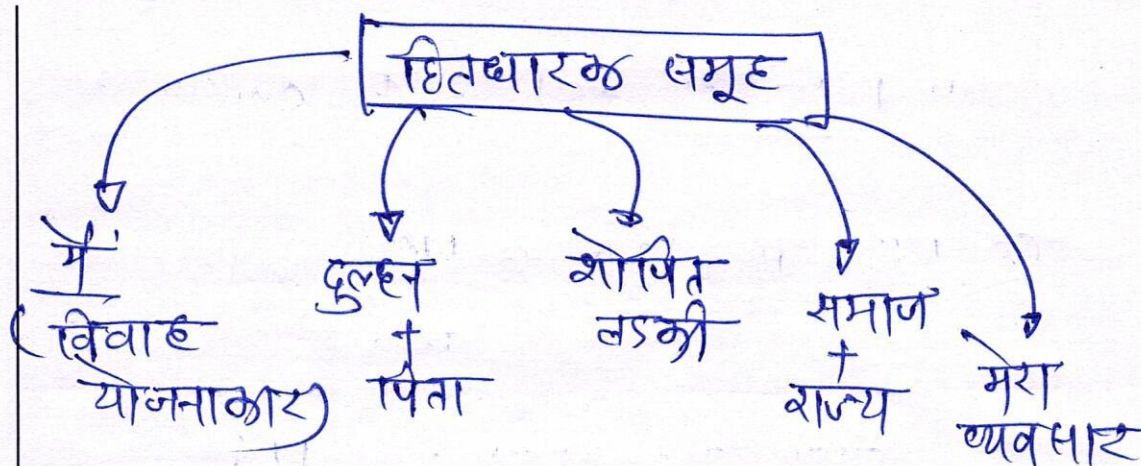 हितधारक समूह
मैं
(विवाह
योजनाकार)
दुल्हन
+
पिता
शोषित
लडकी
समाज
+
राज्य
मेरा
व्यवसाय